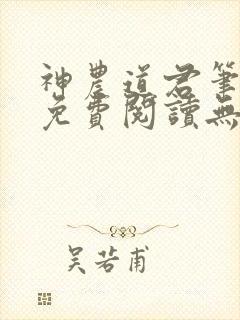 神農道君筆
免費閱讀無
吳若甫